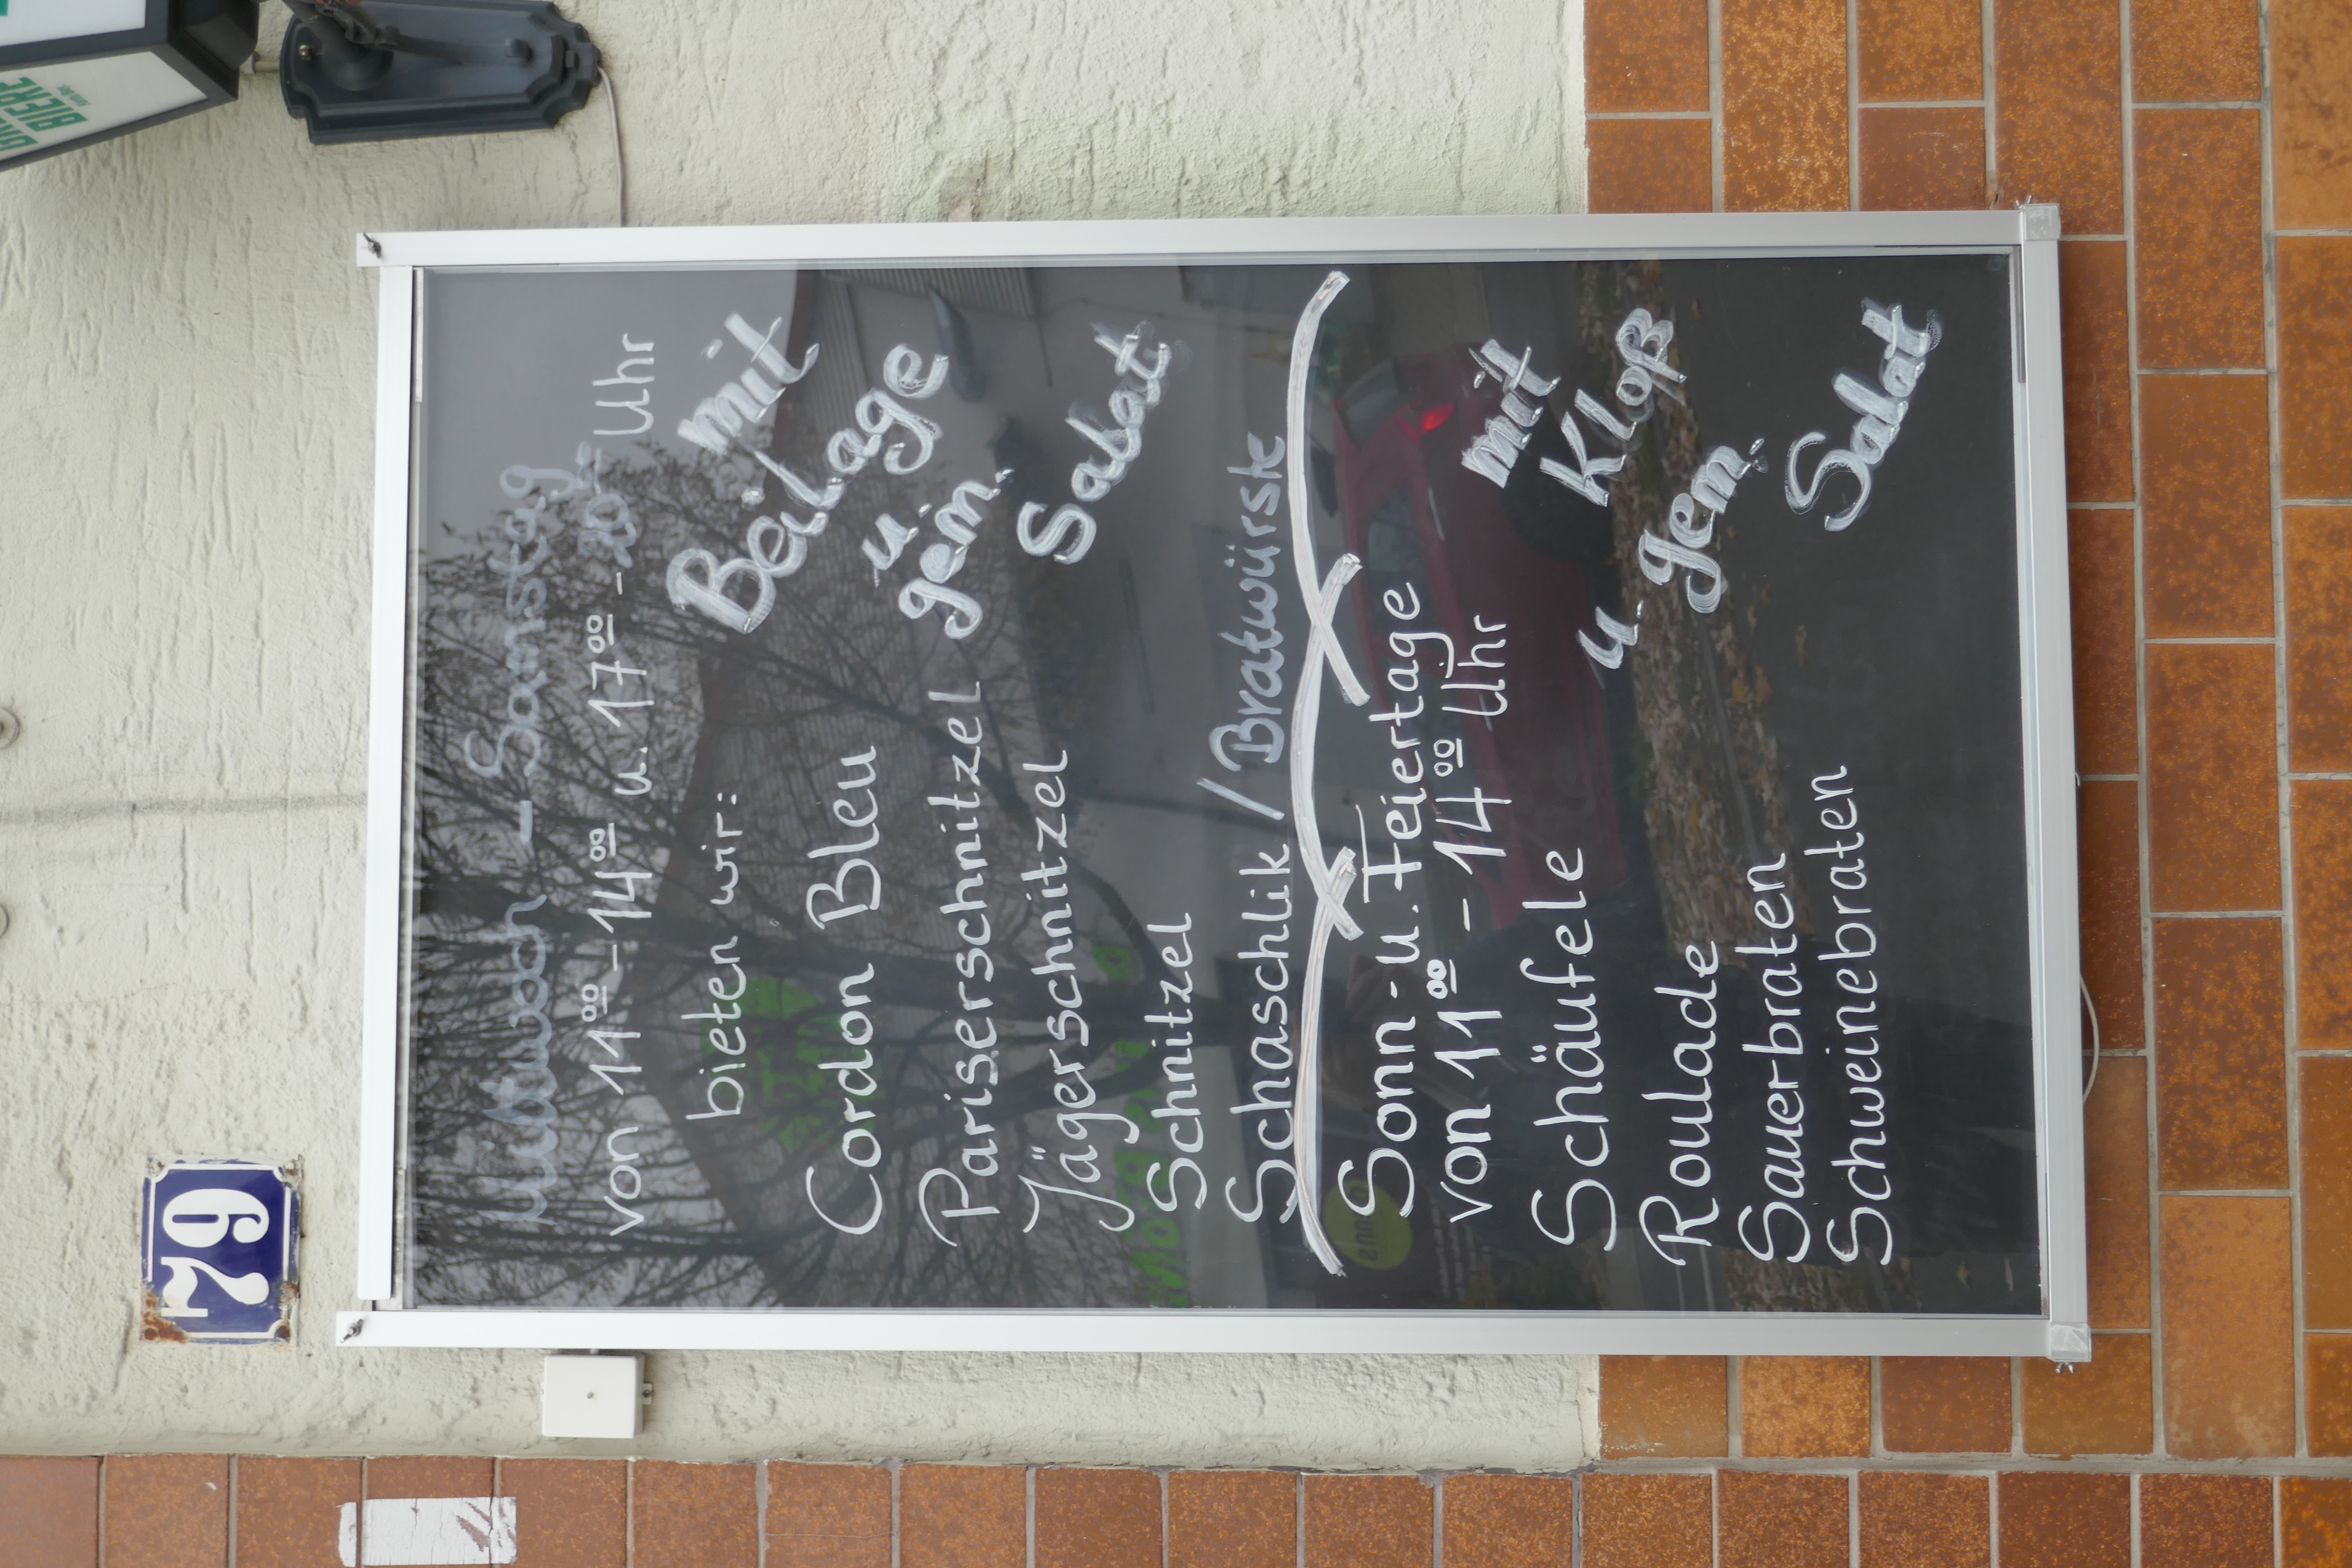 BIERE
29
Mittwoch - Samstag
von 11⁰⁰ - 14⁰⁰ u. 17⁰⁰ - 20⁰⁰ Uhr
bieten wir:
Cordon Bleu
Pariserschnitzel
Jägerschnitzel
Schnitzel
Schaschlik / Bratwürste
mit
Beilage
u.
gem.
Salat
Sonn- u. Feiertage
von 11⁰⁰ - 14⁰⁰ Uhr
Schäufele
Roulade
Sauerbraten
Schweinebraten
mit
Kloß
u. gem.
Salat